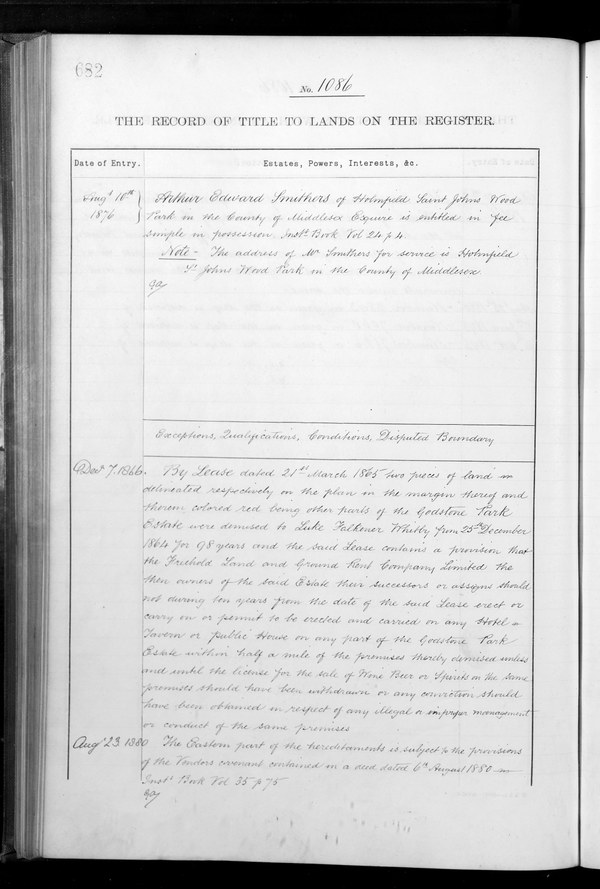 682
No. 1086
THE RECORD OF TITLE TO LANDS ON THE REGISTER.
Date of Entry. Estates, Powers, Interests, &c.
Augt 10th 1876
Arthur Edward Smithers of Holmfield Saint Johns Wood
Park in the County of Middlesex Esquire is entitled in fee
simple in possession. Instt Book Vol 24 p 4
Note - The address of Mr Smithers for service is Holmfield
St Johns Wood Park in the County of Middlesex
Exceptions, Qualifications, Conditions, Disputed Boundary
Decr 7. 1866. By Lease dated 21st March 1865 two pieces of land
delineated respectively on the plan in the margin thereof and
thereon colored red being other parts of the Godstone Park
Estate were demised to Luke Falkener Whitby from 25th December
1864 for 98 years and the said Lease contains a provision that
the Freehold Land and Ground Rent Company Limited the
then owners of the said Estate their successors or assigns should
not during ten years from the date of the said Lease erect or
carry on or permit to be erected and carried on any Hotel
Tavern or Public House on any part of the Godstone Park
Estate within half a mile of the premises thereby demised unless
and until the license for the sale of Wine Beer or Spirits on the same
premises should have been withdrawn or any conviction should
have been obtained in respect of any illegal or improper management
or conduct of the same premises
Augt 23 1880 The Eastern part of the hereditaments is subject to the provisions
of the Vendors covenant contained in a deed dated 6th August 1880
Instt Book Vol 35 p 75